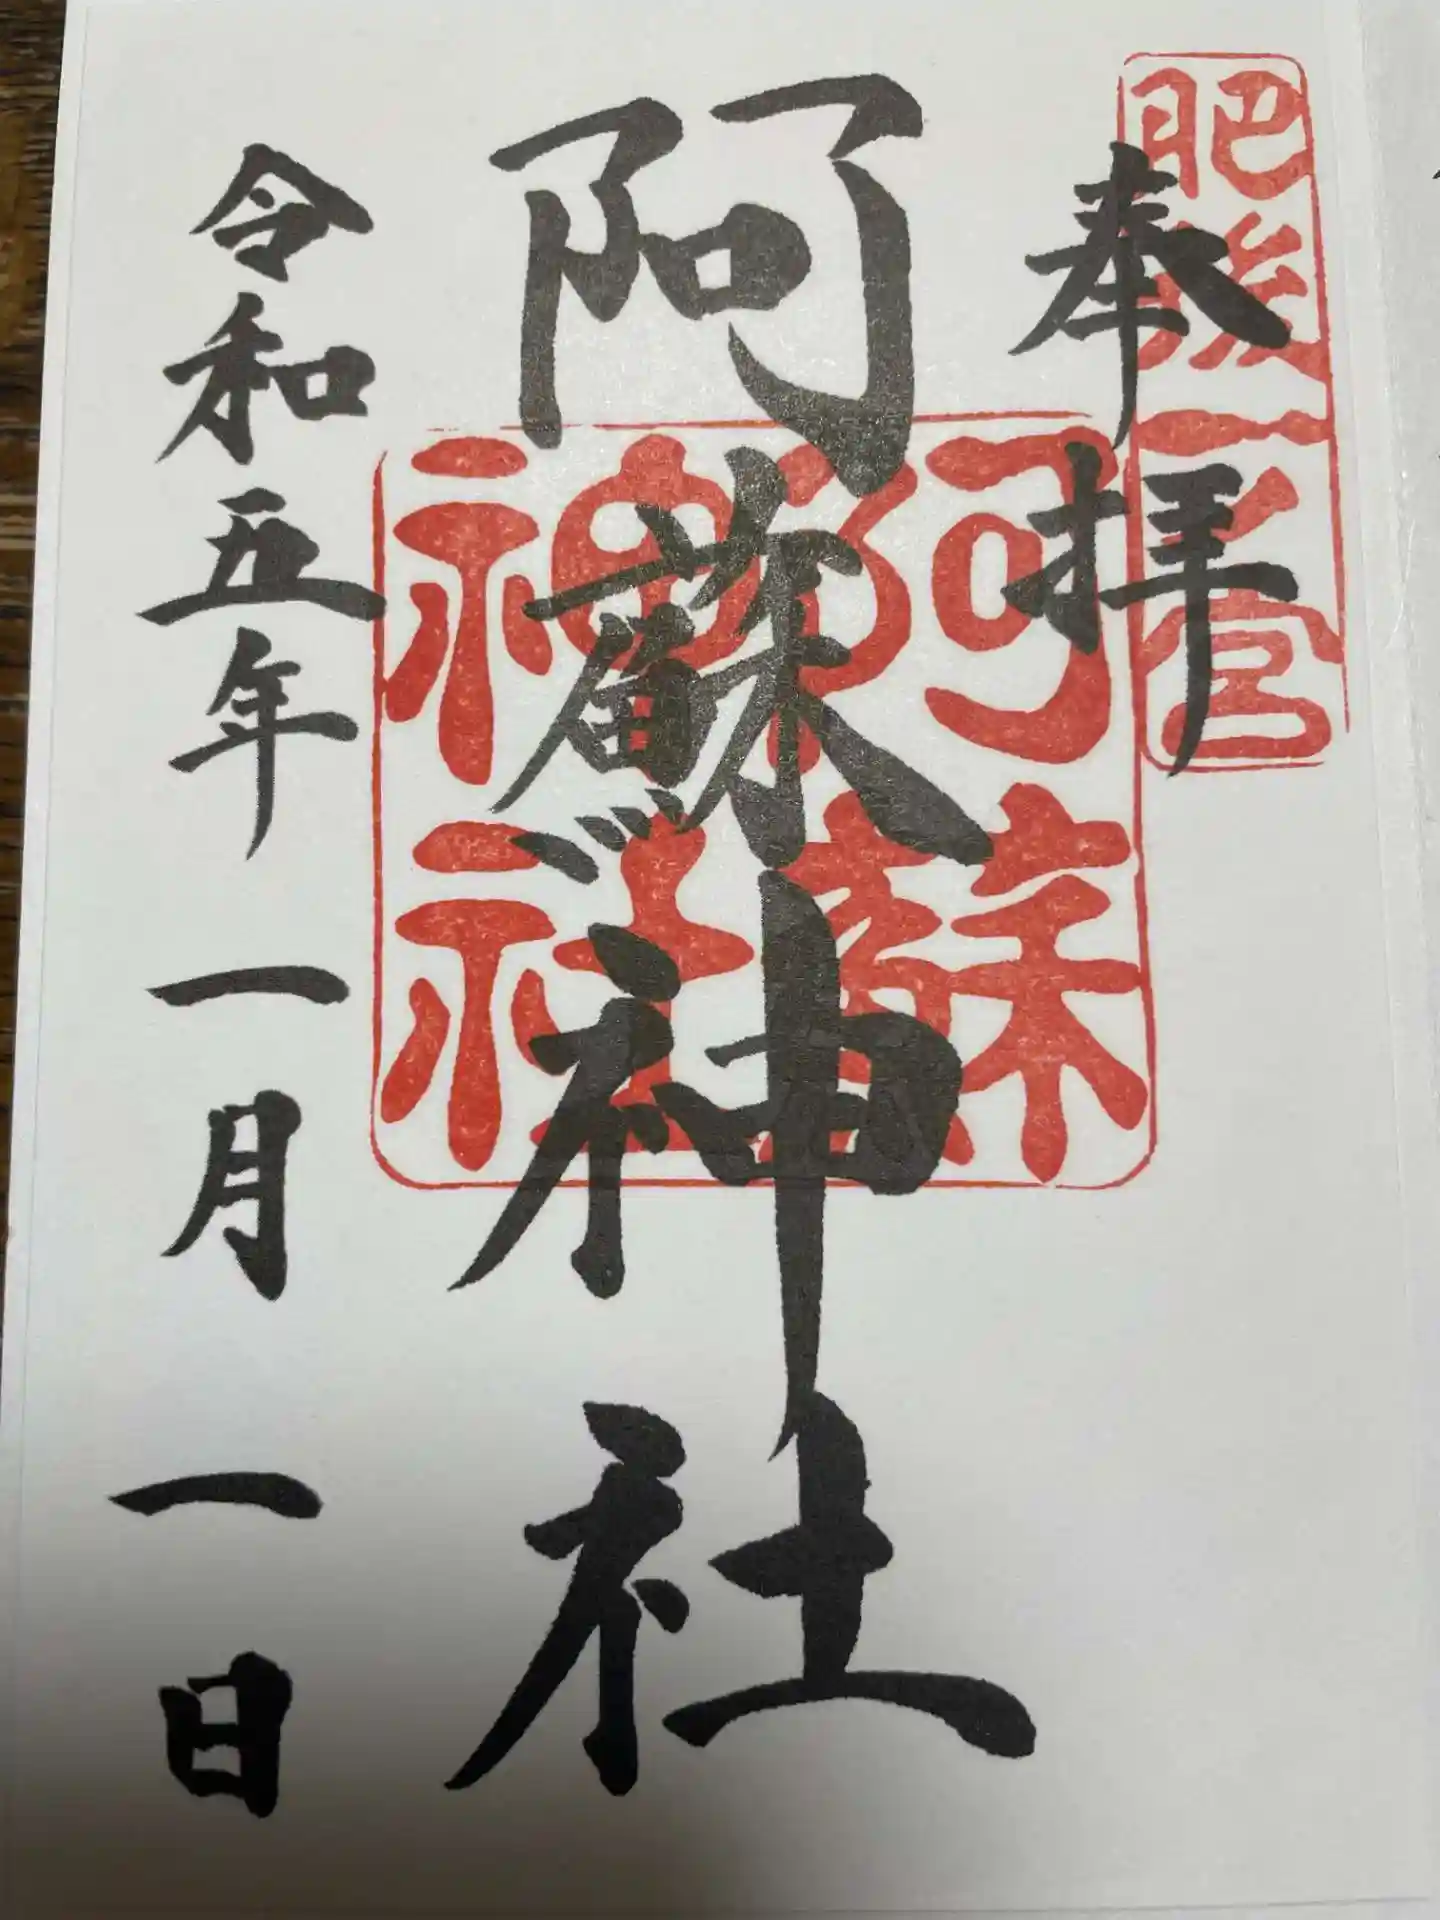 奉拝
肥後一之宮
阿蘇神社
阿蘇神社
令和五年一月一日